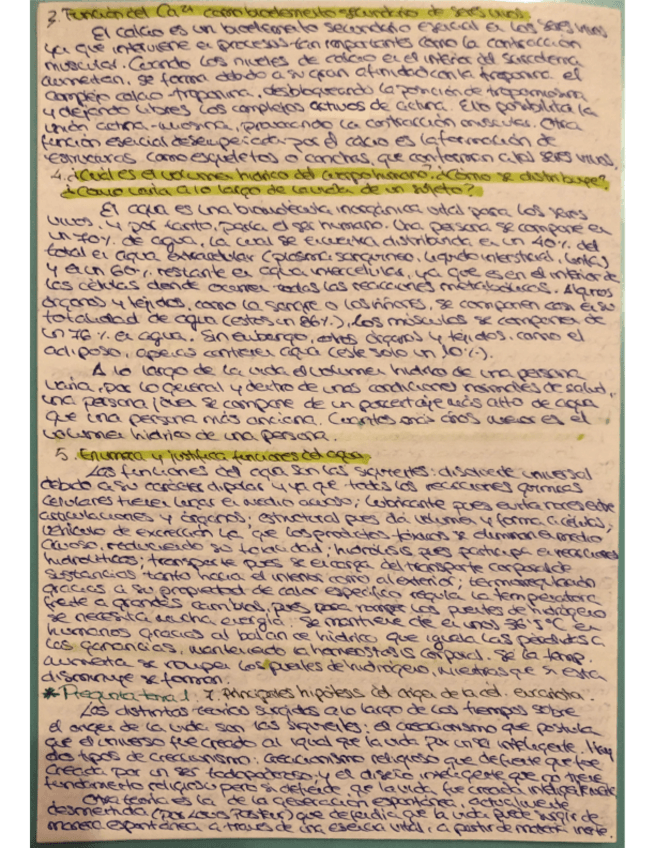 3. Función del Ca²⁺ como bioelemento secundario de seres vivos.
El calcio es un bioelemento secundario esencial en los seres vivos
ya que interviene en procesos tan importantes como la contracción
muscular. Cuando los niveles de calcio en el interior del sarcolema
aumentan, se forma debido a su gran afinidad con la troponina el
complejo calcio-troponina, desbloqueando la posición de tropomiosina
y dejando libres los complejos activos de actina. Ello posibilita la
unión actina-miosina, provocando la contracción muscular. Otra
función esencial desempeñada por el calcio es la formación de
estructuras como esqueletos o conchas, que conforman a los seres vivos.
4. ¿Cuál es el volumen hídrico del cuerpo humano? ¿Cómo se distribuye?
¿Cómo varía a lo largo de la vida de un sujeto?
El agua es una biomolécula inorgánica vital para los seres
vivos, y por tanto, para el ser humano. Una persona se compone en
un 70% de agua, la cual se encuentra distribuida en un 40% del
total en agua extracelular (plasma sanguíneo, líquido intersticial, linfa)
y en un 60% restante en agua intercelular, ya que es en el interior de
las células donde ocurren todas las reacciones metabólicas. Algunos
órganos y tejidos, como la sangre o los riñones, se componen casi en su
totalidad de agua (estos un 86%), los músculos se componen de
un 76% en agua. Sin embargo, otros órganos y tejidos, como el
adiposo, apenas contienen agua (este solo un 10%).
A lo largo de la vida el volumen hídrico de una persona
varía, por lo general y dentro de unas condiciones normales de salud,
una persona joven se compone de un porcentaje más alto de agua
que una persona más anciana. Cuantos más años menor es el
volumen hídrico de una persona.
5. Enumera y justifica funciones del agua
Las funciones del agua son las siguientes: disolvente universal
debido a su carácter dipolar y ya que todas las reacciones químicas
celulares tienen lugar en medio acuoso; lubricante pues evita roces entre
articulaciones y órganos; estructural pues da volumen y forma a células;
vehículo de excreción ya que los productos tóxicos se eliminan en medio
acuoso, reduciendo su toxicidad; hidrólisis pues participa en reacciones
hidrolíticas; transporte pues se encarga del transporte corporal de
sustancias tanto hacia el interior como al exterior; termorregulación
gracias a su propiedad de calor específico regula la temperatura
frente a grandes cambios, pues para romper los puentes de hidrógeno
se necesita mucha energía. Se mantiene de unos 36'5°C en
humanos gracias al balance hídrico que iguala las pérdidas a
las ganancias, manteniendo la homeostasis corporal. Si la temp.
aumenta se rompen los puentes de hidrógeno, mientras que si esta
disminuye se forman.
* Pregunta tema 1. 7. Principales hipótesis del origen de la cél. eucariota.
Las distintas teorías surgidas a lo largo de los tiempos sobre
el origen de la vida son las siguientes: el creacionismo que postula
que el universo fue creado al igual que la vida por un ser inteligente. Hay
dos tipos de creacionismo: creacionismo religioso que defiende que fue
creada por un ser todopoderoso y el diseño inteligente que no tiene
fundamento religioso pero sí defiende que la vida fue creada inteligentemente
Otra teoría es la de la generación espontánea, actualmente
desmentida (por Louis Pasteur) que defendía que la vida puede surgir de
manera espontánea a través de una esencia vital, a partir de materia inerte.